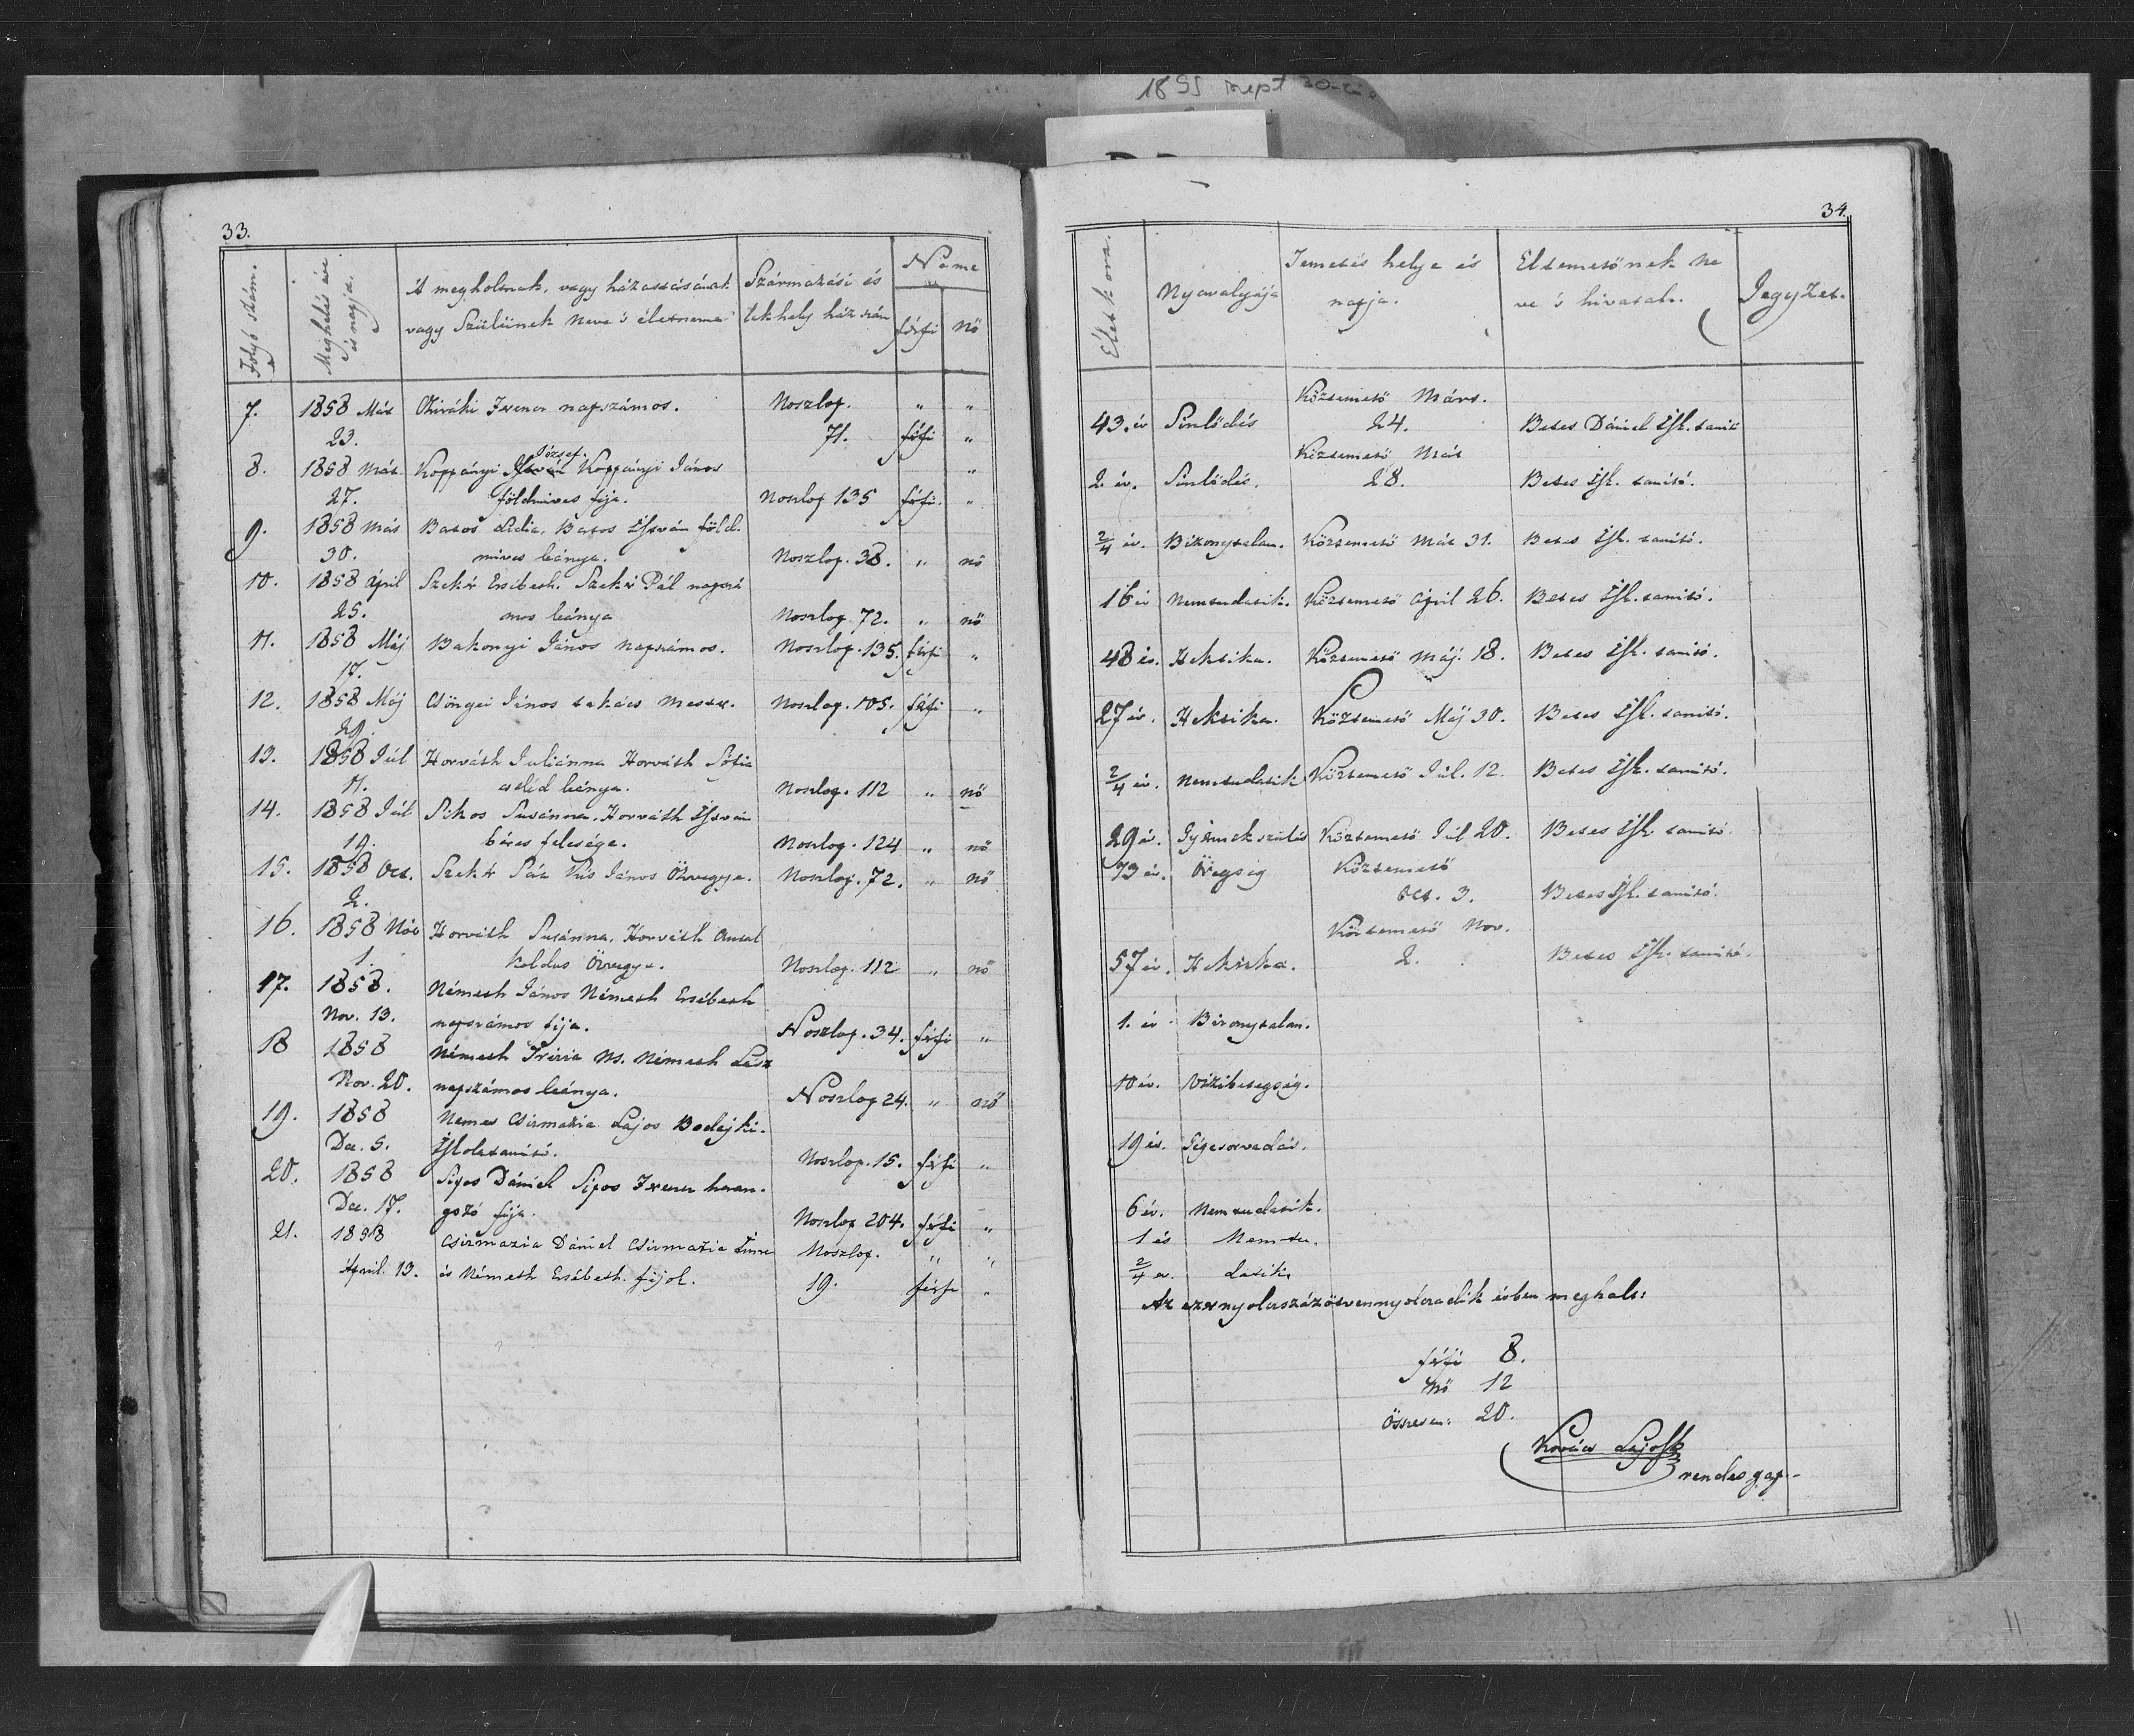 1895 sept 30-
33.
Folyó szám.
Meghalás éve és napja.
A megholtnak, vagy házastársának
vagy Szüleinek neve 's életneme
Származási és
lakhely ház szám
Neme
férfi nő
7. 1858 Már Ferencz napszámos. Noszlop. " "
23. 71. férfi "
József.
8. 1858 Már Koppányi István Koppányi János "
27. földmives fija. Noszlop 135 férfi. "
9. 1858 Már Batos Lidia, Batos István föld-
30. mives leánya. Noszlop. 38. " nő
10. 1858 April Szekér Ersébeth. Szekér Pál napszá
25. mos leánya Noszlop. 72. " nő
11. 1858 Máj Bakonyi János napszámos. Noszlop. 135. férfi "
17.
12. 1858 Máj Csöngei János takács mester. Noszlop. 105. férfi "
29.
13. 1858 Júl Horváth Juliánna Horváth Sófia
11. cseléd leánya. Noszlop. 112 " nő
14. 1858 Júl Sikos Susánna. Horváth István
19. béres felesége. Noszlop. 124 " nő
15. 1858 Oct. Szekér Kis János Özvegye. Noszlop. 72. " nő
2.
16. 1858 Nov Horváth Susánna, Horváth Antal
1. koldus Özvegye. Noszlop. 112 " nő
17. 1858. Németh János Németh Ersébeth
Nov. 13. napszámos fija. Noszlop. 34. férfi "
18 1858 Németh Németh
Nov. 20. napszámos leánya. Noszlop 24. " nő
19. 1858 Nemes Csizmazia Lajos Bodajki
Dec. 5. Iskolatanitó. Noszlop. 15. férfi "
20. 1858 Sipos Dániel Sipos Ferencz haran-
Dec. 17. gozó fija. Noszlop 204. férfi "
21. 1858 Csizmazia Dániel Csizmazia Imre Noszlop. " "
April. 13. és Németh Ersébeth. fijok. 19. férfi "
34.
Élet kora.
Nyavalyája
Temetés helye és
napja.
Eltemetőnek ne
ve 's hivatala.
Jegyzet.
Köztemető Márs.
43. év Sinlődés 24. Betes Dániel Isk. tanit
Köztemető Már
2. év. Sinlődés. 28. Betes Isk. tanitó.
2/4 év. Bizonytalan. Köztemető Már 31. Betes Isk. tanitó.
16 év Nemtudatik. Köztemető April 26. Betes Isk. tanitó.
48 év. Hektika. Köztemető Máj. 18. Betes Isk. tanitó.
27 év. Hektika. Köztemető Máj 30. Betes Isk. tanitó.
2/4 év. Nemtudatik Köztemető Júl. 12. Betes Isk. tanitó.
29 é. Gyermekszülés Köztemető Júl 20. Betes Isk tanitó.
73 év. Öregség Köztemető
Oct. 3. Betes Isk. tanitó.
Köztemető Nov.
57 év. Hektika. 2. Betes Isk. tanitó.
1. év. Bizonytalan.
10 év. Vizibetegség.
19 év. Gégesorvadás.
6 év. Nemtudatik.
1 és Nemtu-
2/4 é. datik
Az ezernyolczszázötvennyolczadik évben meghalt:
férfi 8.
nő 12
Összesen: 20.
Kovács Lajos
rendes pap.